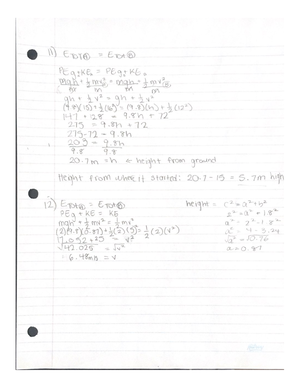 11) ETOTA = ETOTB
PEg + KE = PEg + KE
mgh + ½mv² = mgh + ½mv²
m m m m
gh + ½v² = gh + ½v²
(9.8)(15) + ½(16²) = (9.8)(h) + ½(12²)
147 + 128 = 9.8h + 72
275 = 9.8h + 72
275-72 = 9.8h
203 = 9.8h
9.8 9.8
20.7m = h ← height from ground
Height from where it started: 20.7 - 15 = 5.7m high
12) ETOTA = ETOTB
PEg + KE = KE
mgh + ½mv² = ½mv²
(2)(9.8)(0.87) + ½(2)(5)² = ½(2)(v²)
17.052 + 25 = v²
√42.025 = √v²
6.48m/s = v
height = c² = a² + b²
2² = a² + 1.8²
a² = 2² - 1.8²
a² = 4 - 3.24
√a² = √0.76
a = 0.87